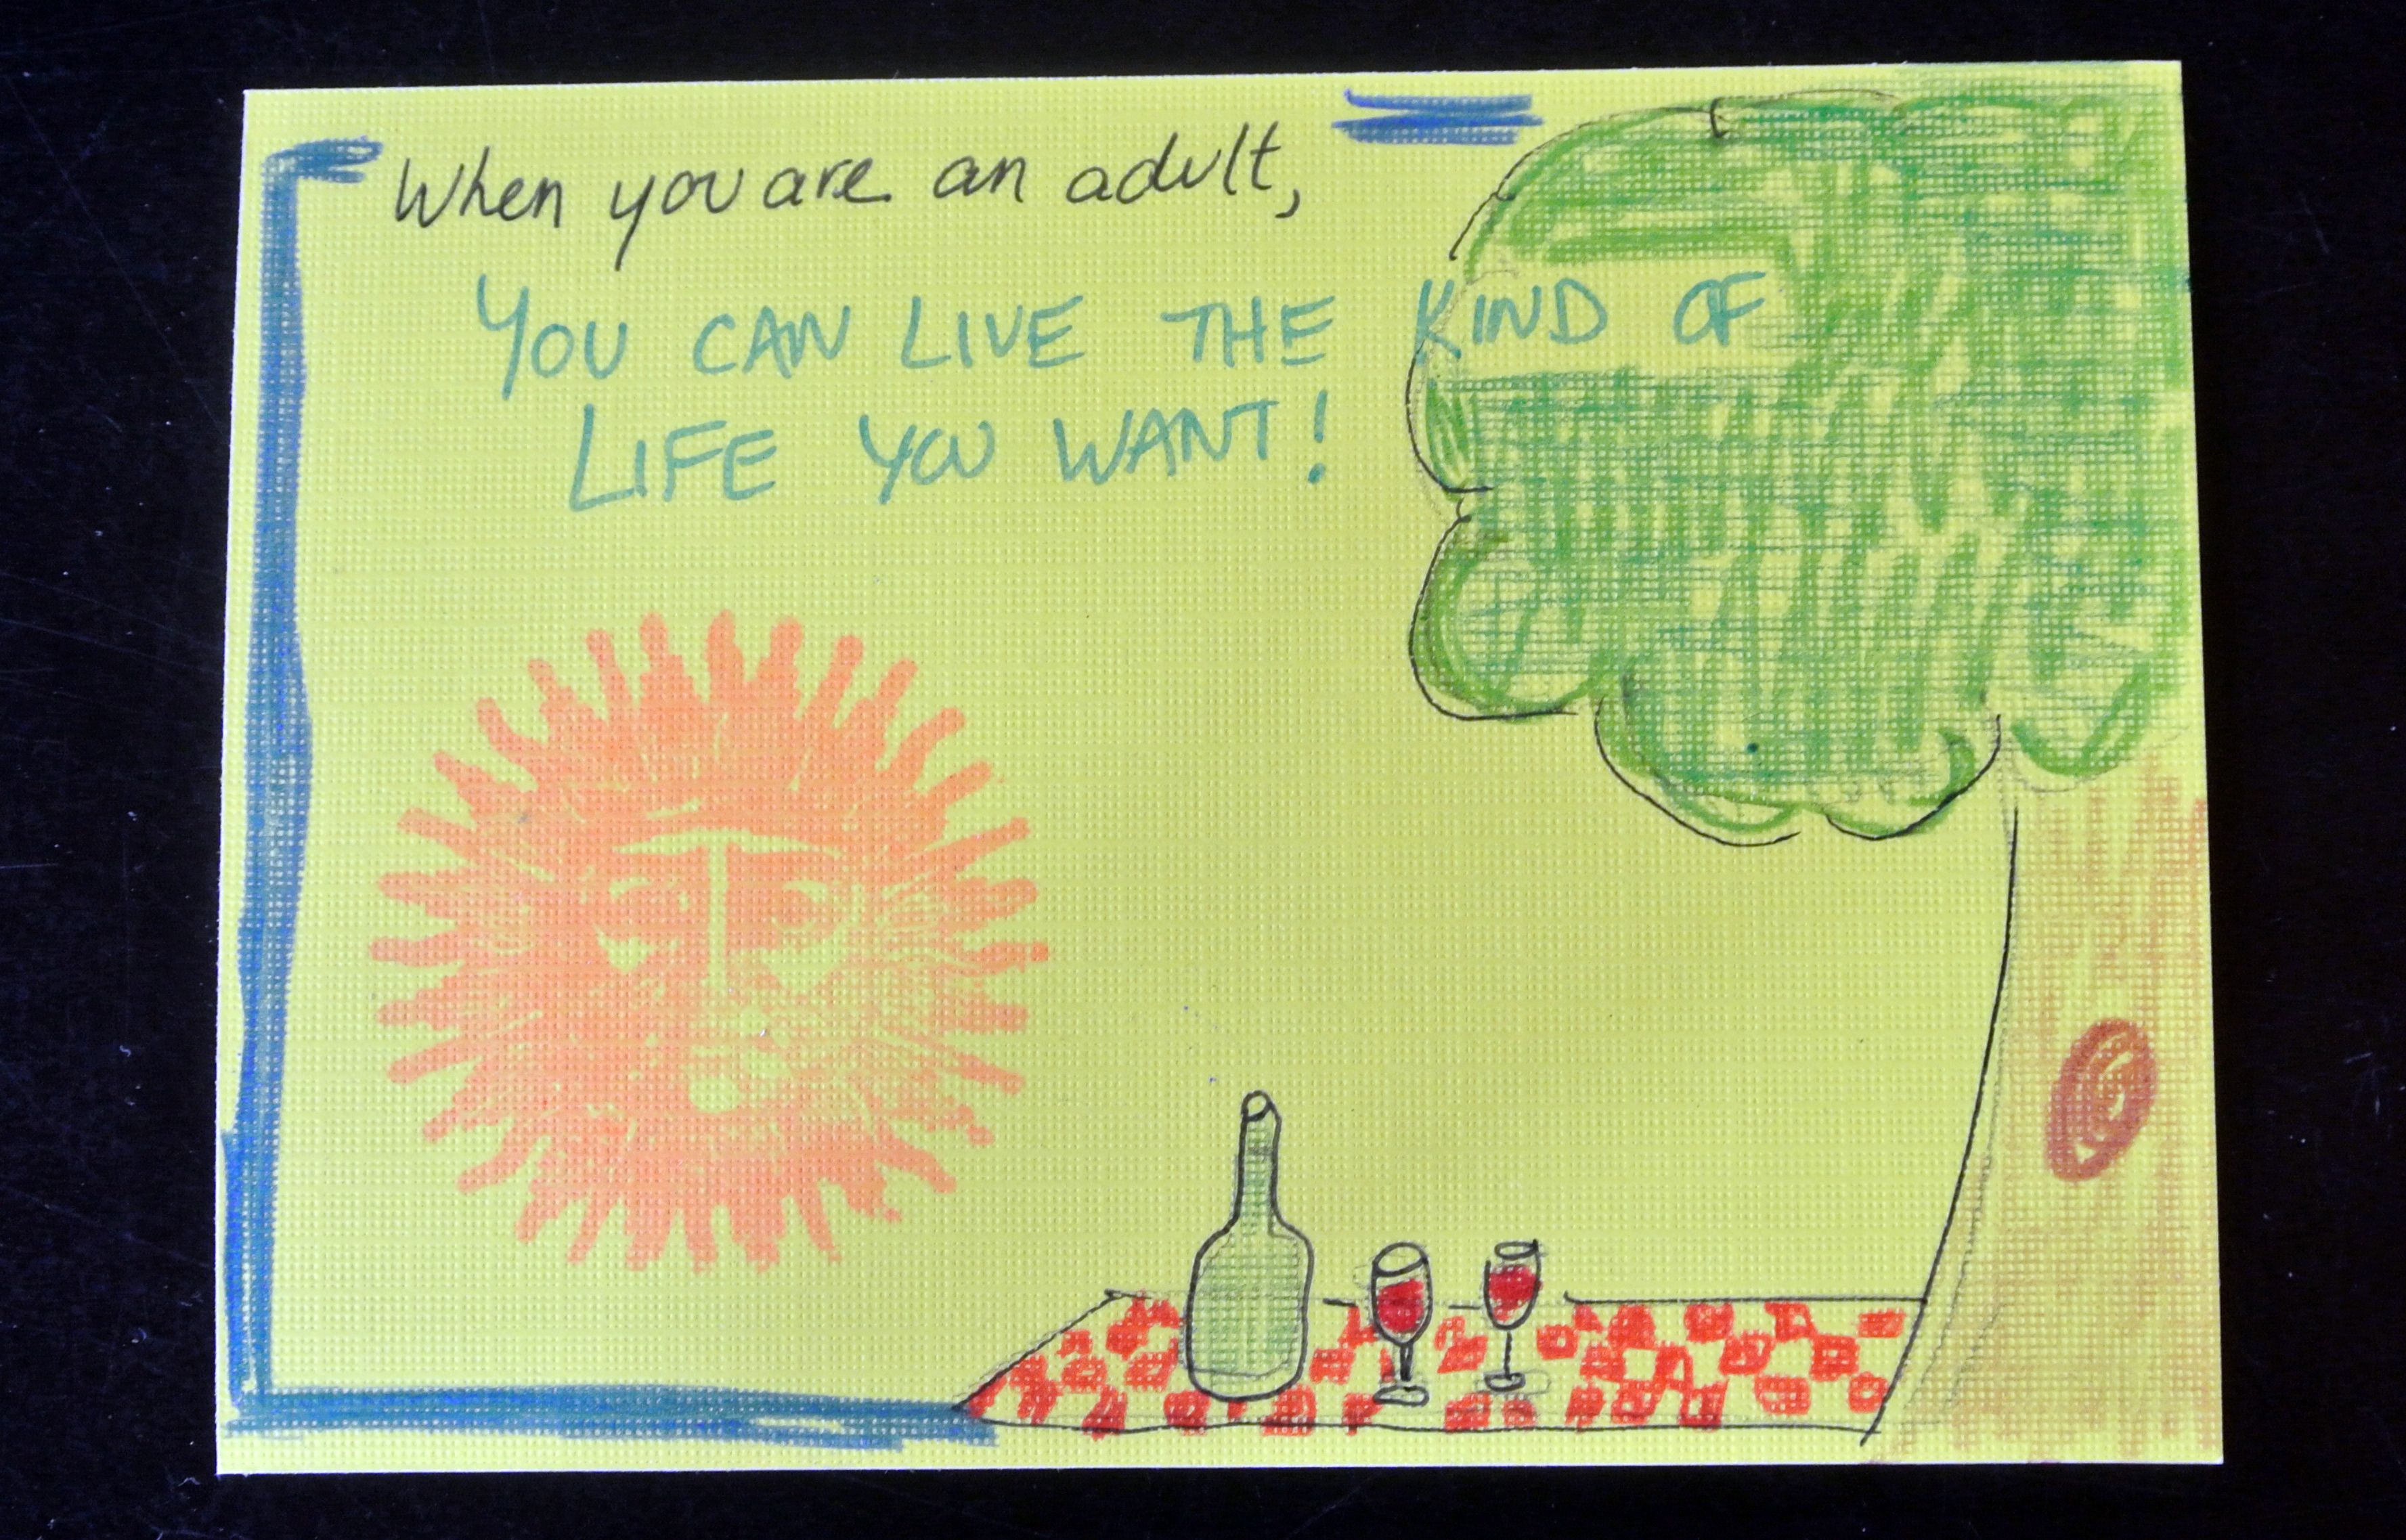 When you are an adult,
YOU CAN LIVE THE KIND OF
LIFE YOU WANT!